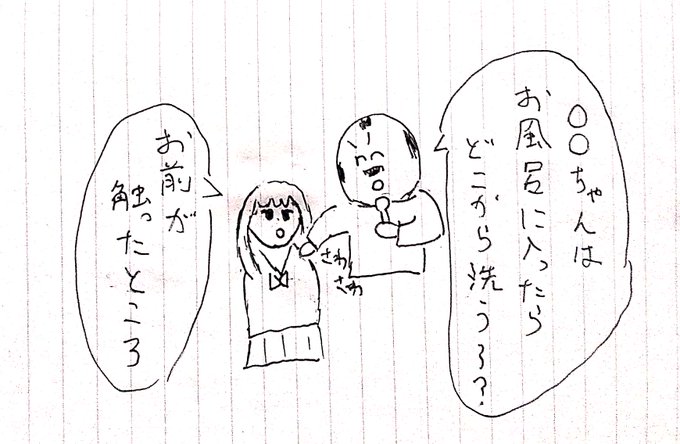 ○○ちゃんは
お風呂に入ったら
どこから洗うろ?
さわ
さわ
お前が
触ったところ